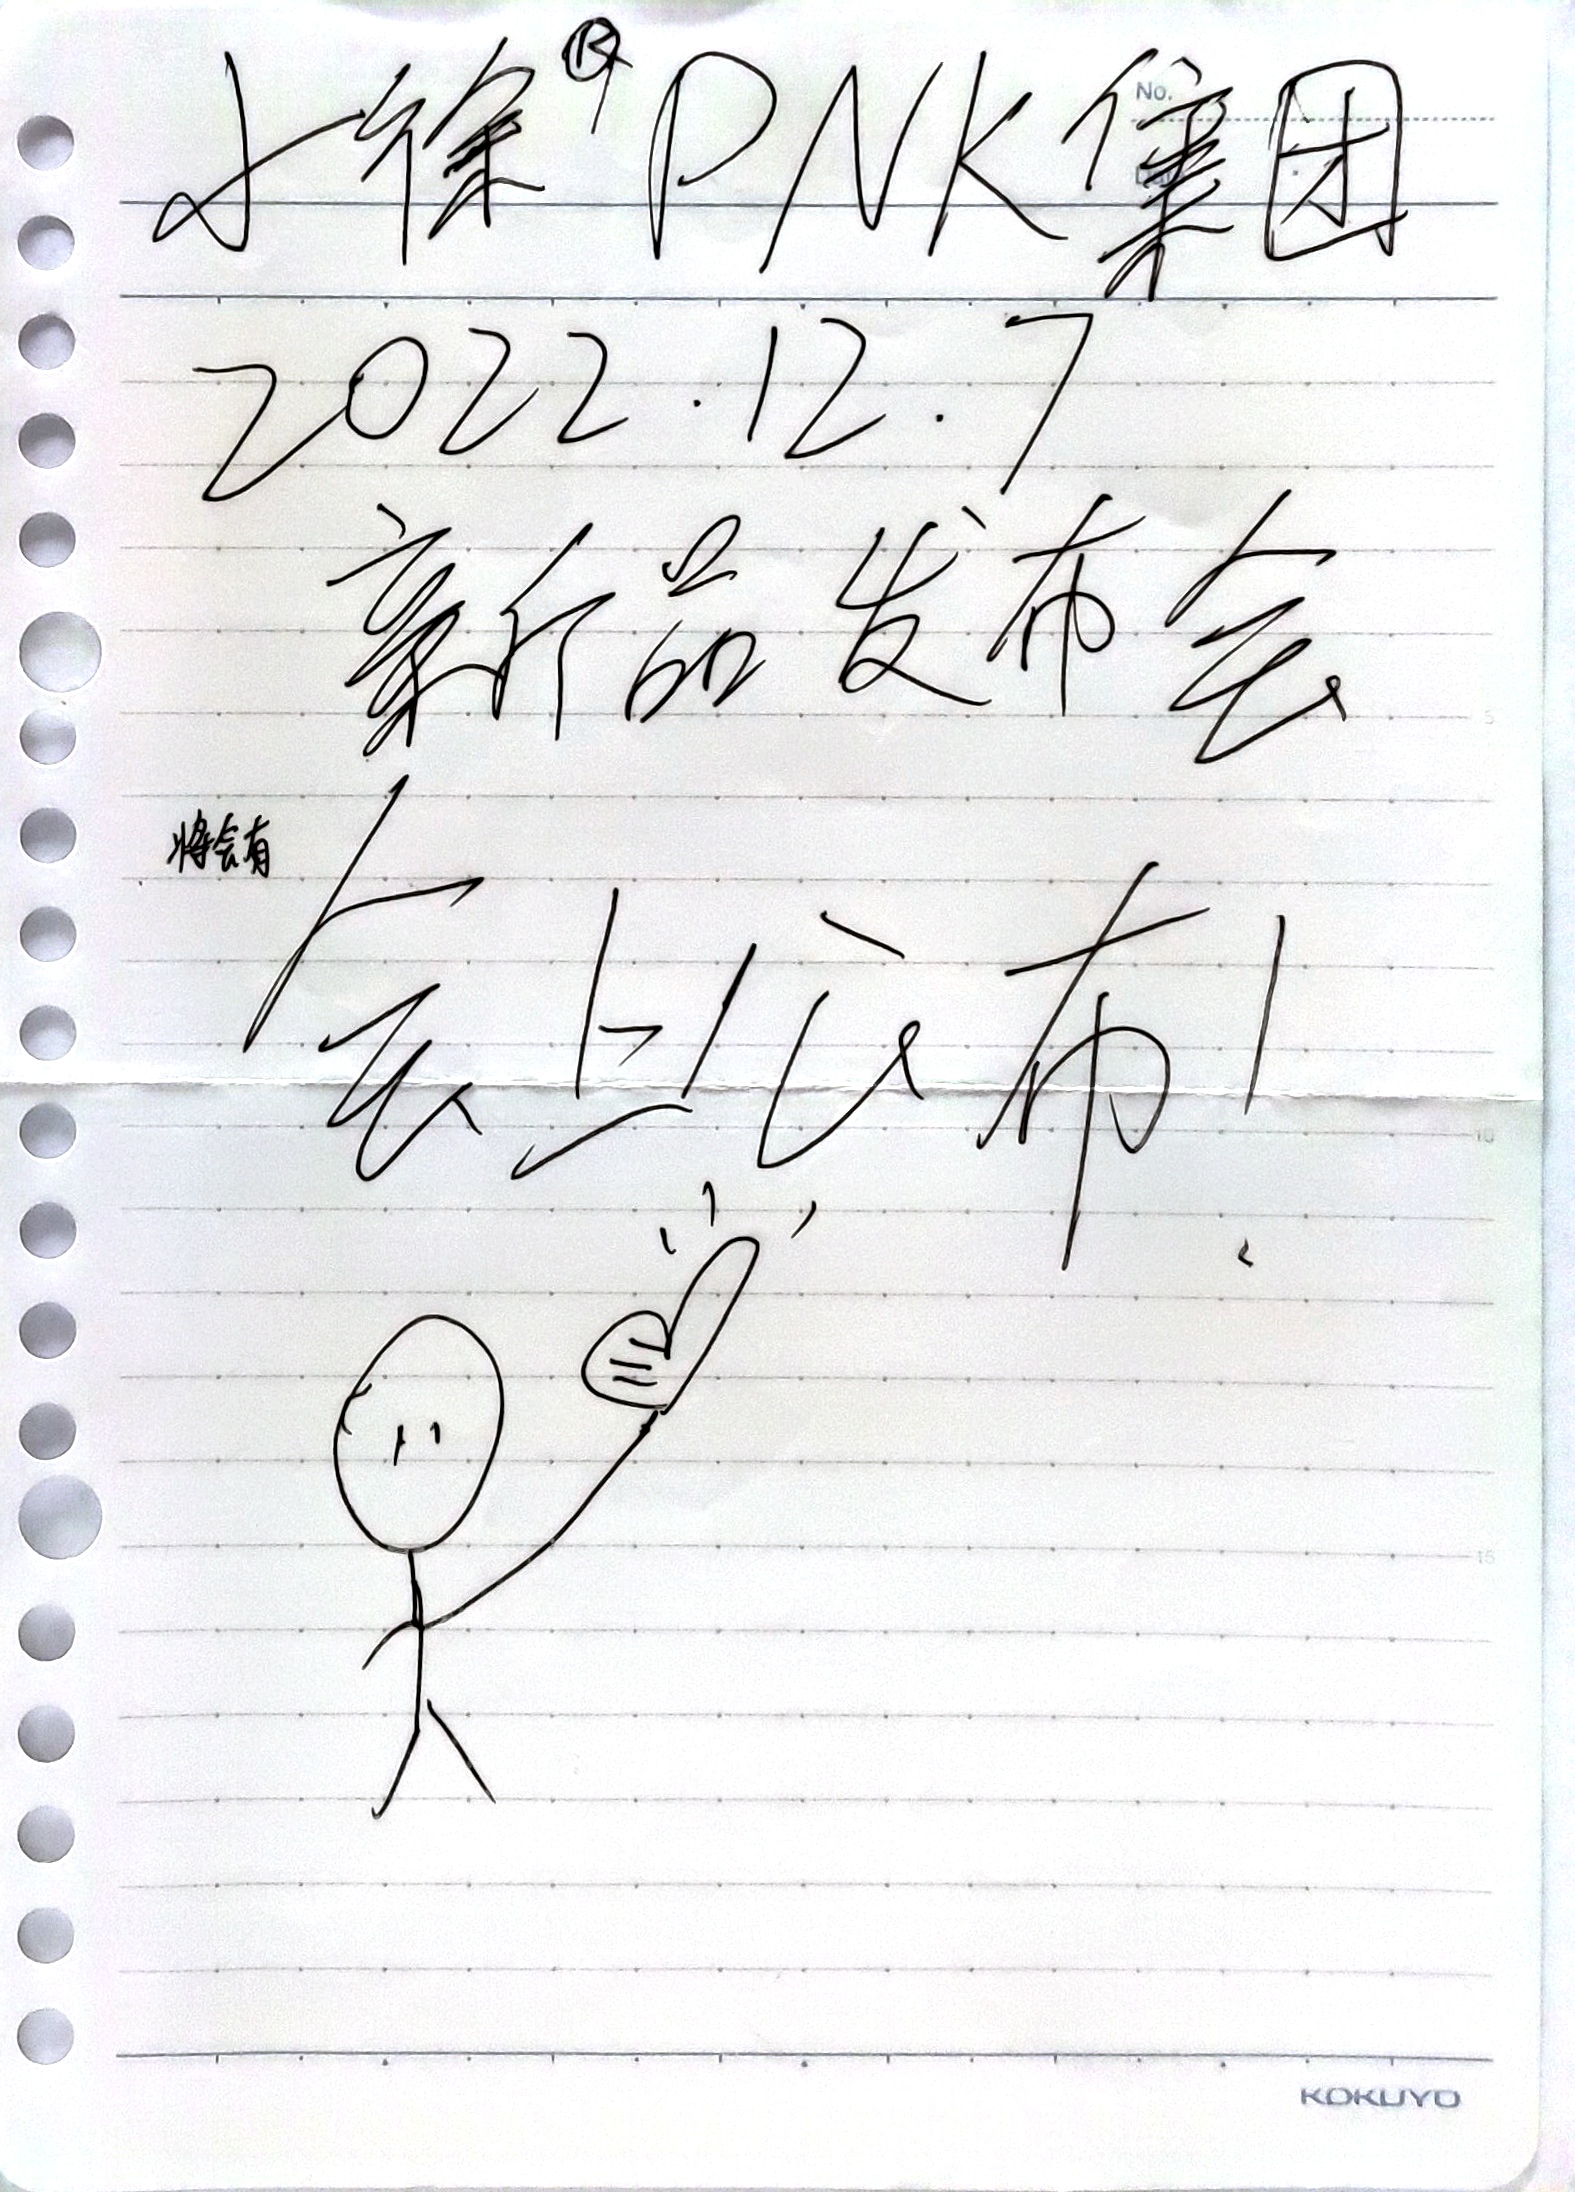 小徐®PNK集团
No.
2022.12.7
新品发布会
将会有
会上公布!
5
10
15
KOKUYO